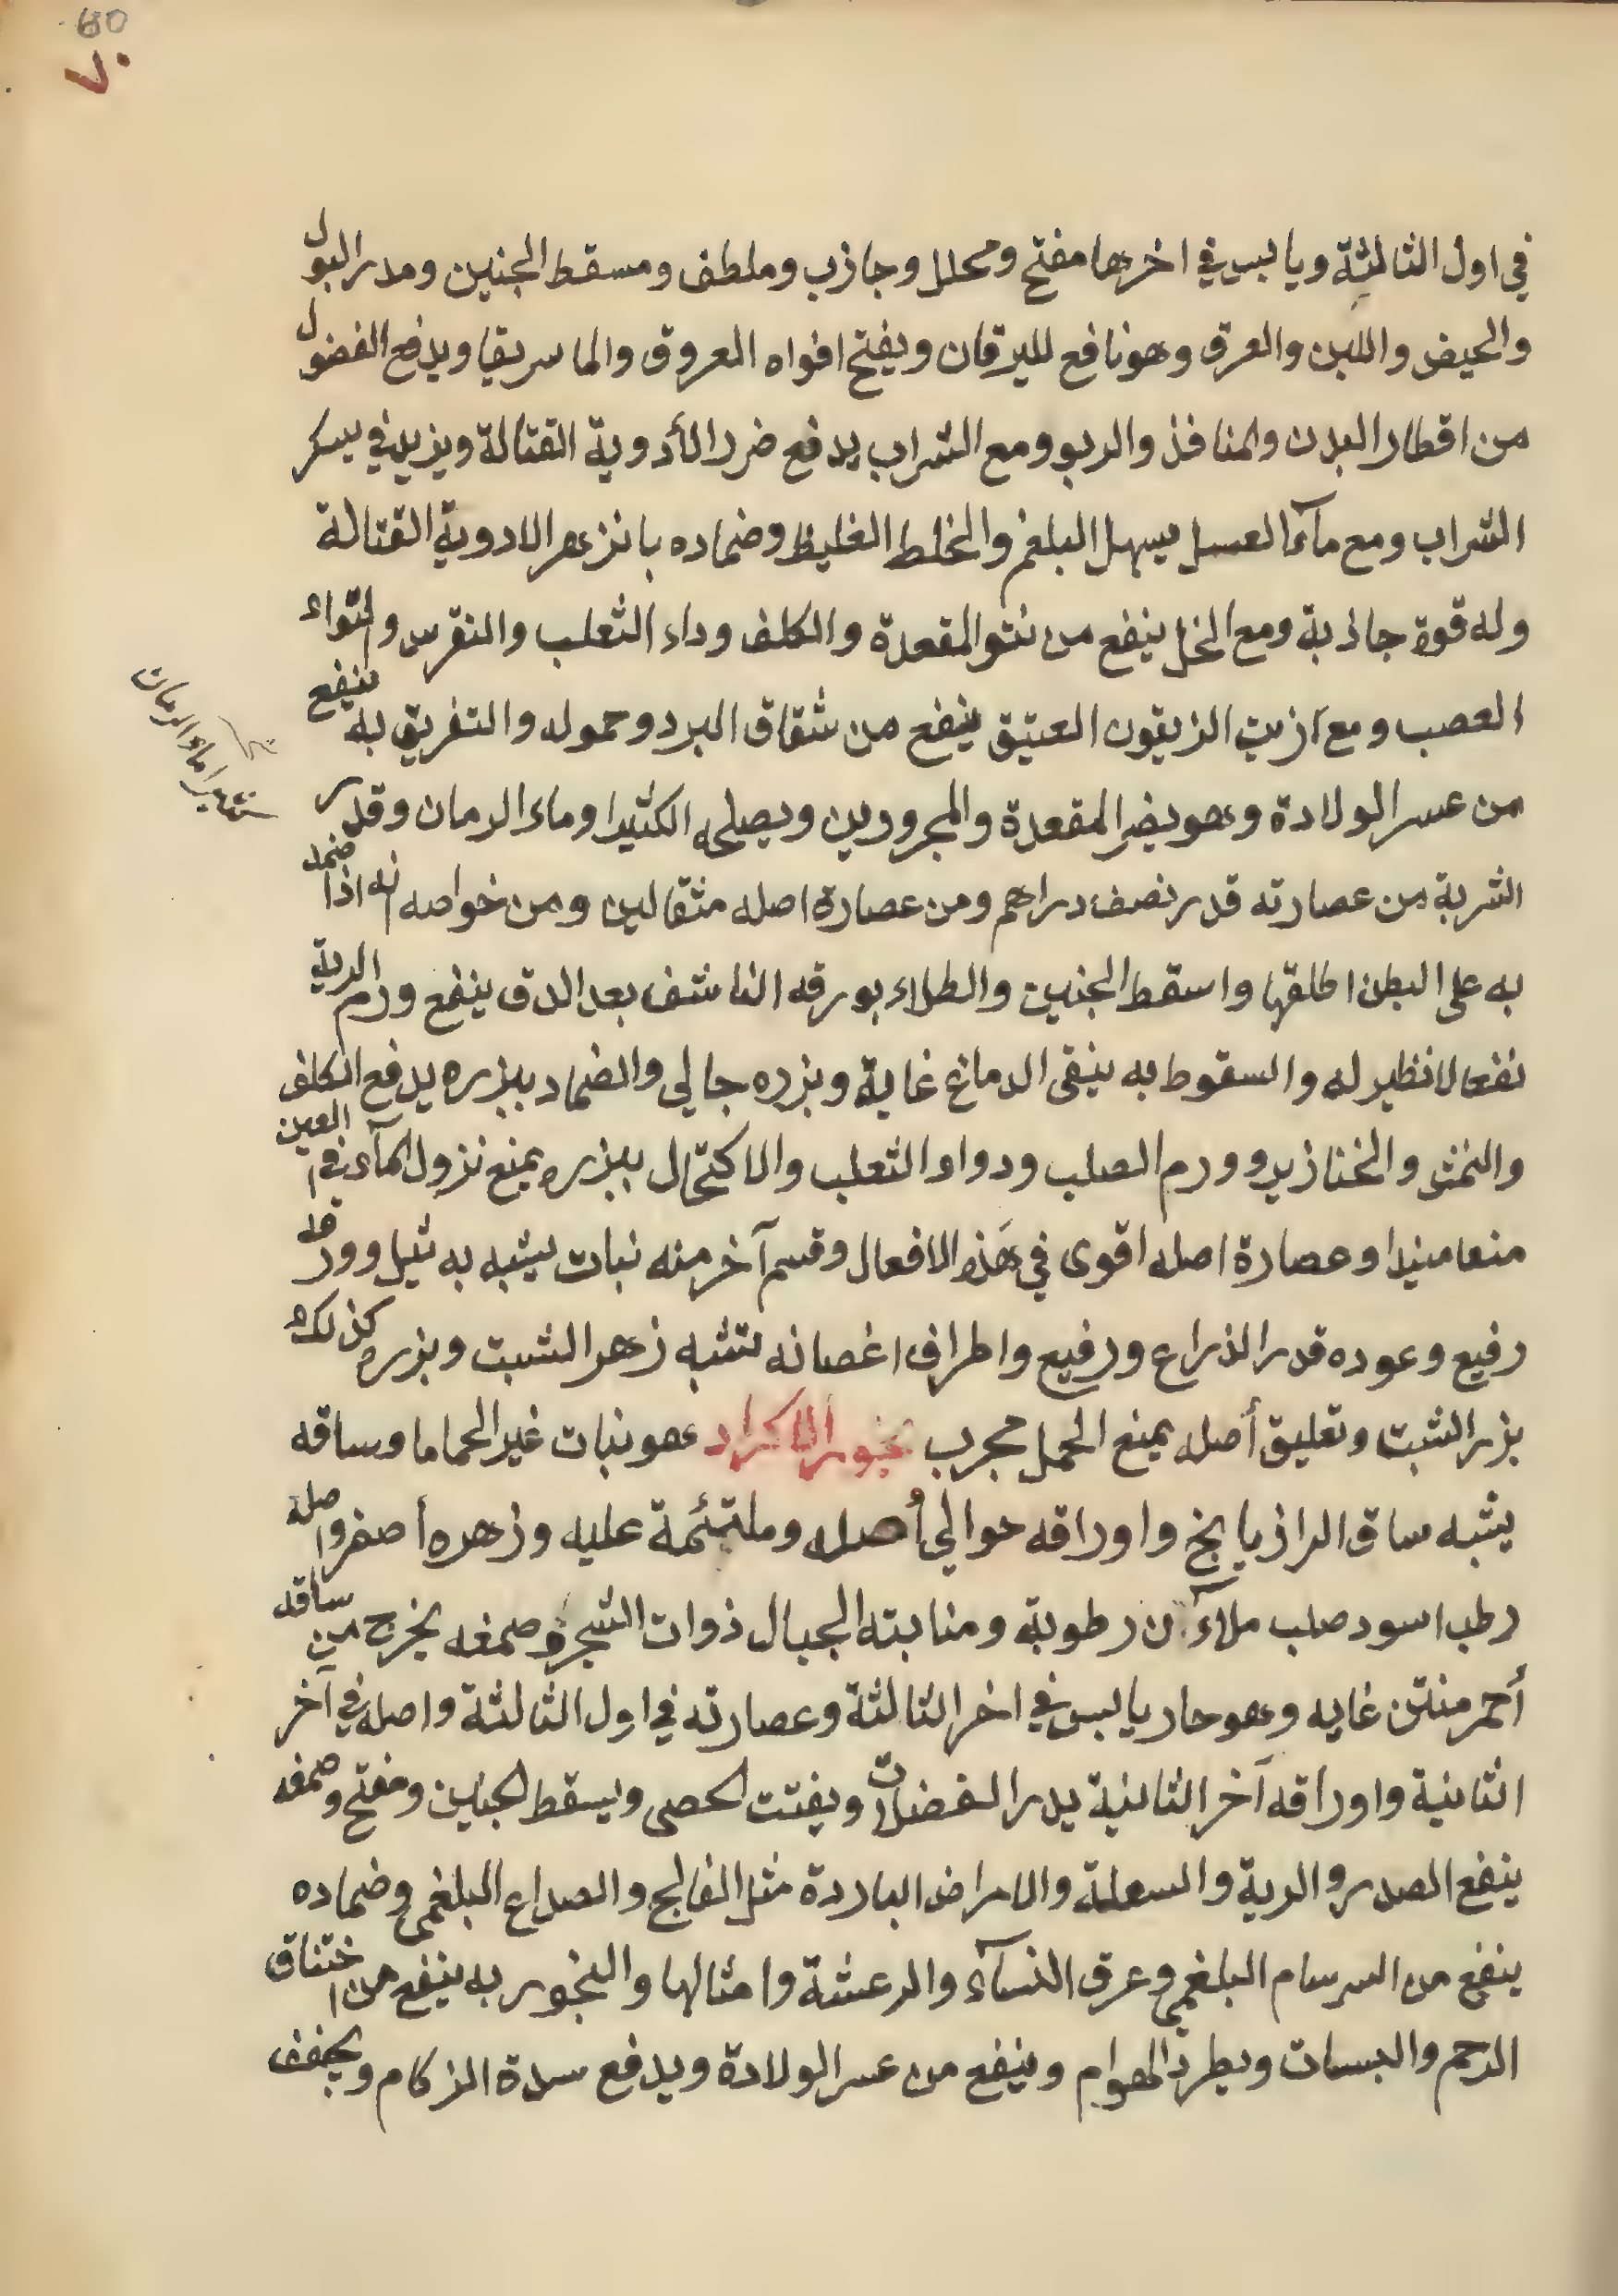 60
٧٠
في اول الثالثة ويابس في اخرها مفتح ومحلل وجاذب وملطف ومسقط الجنين ومدر البول
والحيض واللبن والعرق وهو نافع لليرقان ويفتح افواه العروق والماسريقا ويدفع الفضول
من اقطار البدن والمنافذ والربو ومع الشراب يدفع ضرر الأدوية القتالة ويزيد في سكر
الشراب ومع مآء العسل يسهل البلغم والخلط الغليظ وضماده بانزهر الادوية القتالة
وله قوة جاذبة ومع الخل ينفع من نتو المقعدة والكلف وداء الثعلب والنقرس والتواء
العصب ومع زيت الزيتون العتيق ينفع من شقاق البرد وحموله والتفريق به ينفع
من عسر الولادة وهو يضر المقعدة والمحرورين ويصلحه الكثيرا وماء الرمان وقدر
كثيرا ماء الرمان
الشربة من عصارته قدر نصف دراهم ومن عصارة اصله مثقالين ومن خواصه انه اذا ضمد
به على البطن اطلقها واسقط الجنين والطلاء بورقه الناشف بعد الدق ينفع ورم الرية
نفعا لا نظير له والسقوط به ينقى الدماغ غاية وبزره جالي والضماد ببزره يدفع الكلف
والنمش والخنازير وورم الصلب ودواء الثعلب والاكتحال ببزره يمنع نزول المآء في العين
منعا مبيدا وعصارة اصله اقوى في هذه الافعال وقسم آخر منه نبات يشبه به ثيل وورقه
رفيع وعوده قدر الذراع ورفيع واطراف اغصانه تشبه زهر الشبت وبزره كذلك
بزر الشبت وتعليق أصله يمنع الحمل مجرب بخور الاكراد هو نبات غير الحماما وساقه
يشبه ساق الرازيانج واوراقه حوالي أصله وملتئمة عليه وزهره أصفر واصله
رطب اسود صلب ملآن رطوبة ومنابته الجبال ذوات الشجر وصمغه يخرج من ساقه
أحمر منتن غايه وهو حار يابس في اخر الثالثة وعصارته في اول الثالثة واصله في آخر
الثانية واوراقه آخر الثانية يدر الفضلات ويفتت الحصى ويسقط الجنين ومفتح وصمغه
ينفع الصدر والرية والسعلة والامراض الباردة مثل الفالج والصداع البلغمي وضماده
ينفع من السرسام البلغمي وعرق النسآء والرعشة وامثالها والبخور به ينفع من اختناق
الرحم والبسات ويطرد الهوام وينفع من عسر الولادة ويدفع سدة الزكام ويجفف